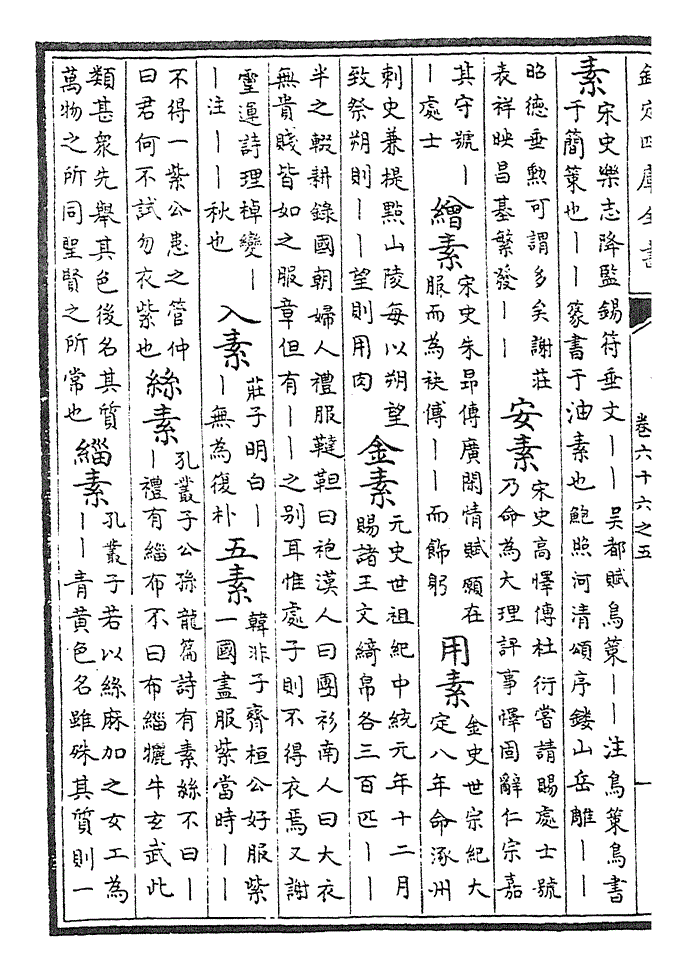 欽定四庫全書 卷六十六之五 一
素
宋史樂志降監錫符垂文丨丨吳都賦鳥䇲丨丨注鳥䇲鳥書
于簡䇲也丨丨篆書于油素也鮑照河清頌序鏤山岳雕丨丨
昭德垂勲可謂多矣謝莊
表祥映昌基繁發丨丨
安素
宋史高懌傳杜衍嘗請賜處士號
乃命為大理評事懌固辭仁宗嘉
其守號丨
丨處士
繪素
宋史朱昂傳廣閑情賦願在
服而為袂傅丨丨而飾躬
用素
金史世宗紀大
定八年命涿州
刺史兼提點山陵每以朔望
致祭朔則丨丨望則用肉
金素
元史世祖紀中統元年十二月
賜諸王文綺帛各三百匹丨丨
半之輟耕録國朝婦人禮服韃靼曰袍漢人曰團衫南人曰大衣
無貴賤皆如之服章但有丨丨之别耳惟處子則不得衣焉又謝
靈運詩理棹變丨
丨注丨丨秋也
入素
莊子明白丨
丨無為復朴
五素
韓非子齊桓公好服紫
一國盡服紫當時丨丨
不得一紫公患之管仲
曰君何不試勿衣紫也
絲素
孔叢子公孫龍篇詩有素絲不曰丨
丨禮有緇布不曰布緇犧牛玄武此
類甚衆先舉其色後名其質
萬物之所同聖賢之所常也
緇素
孔叢子若以絲麻加之女工為
丨丨青黄色名雖殊其質則一